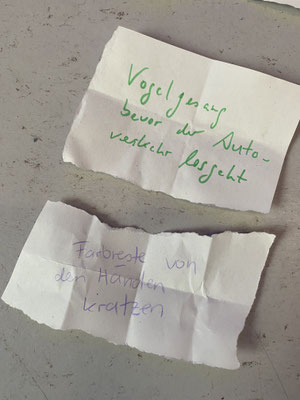 Vogelgesang
bevor der Auto-
verkehr losgeht
Farbreste von
den Händen
kratzen